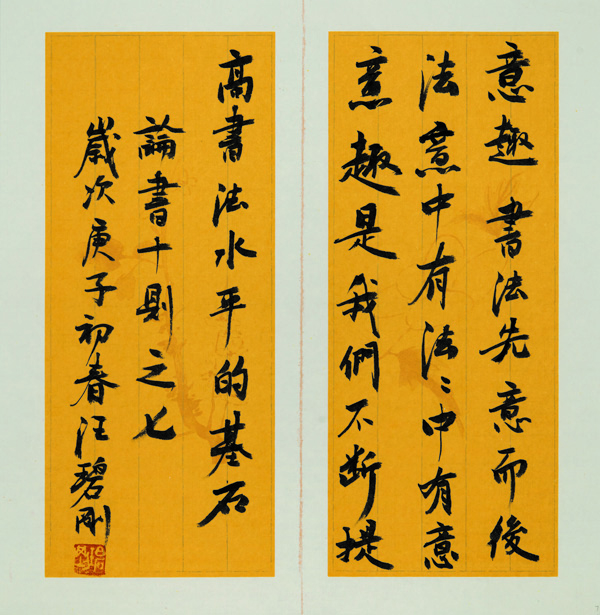 意趣 書法先意而後
法意中有法〻中有意
意趣是我們不断提
高書法水平的基石
論書十則之七
歲次庚子初春汪碧剛